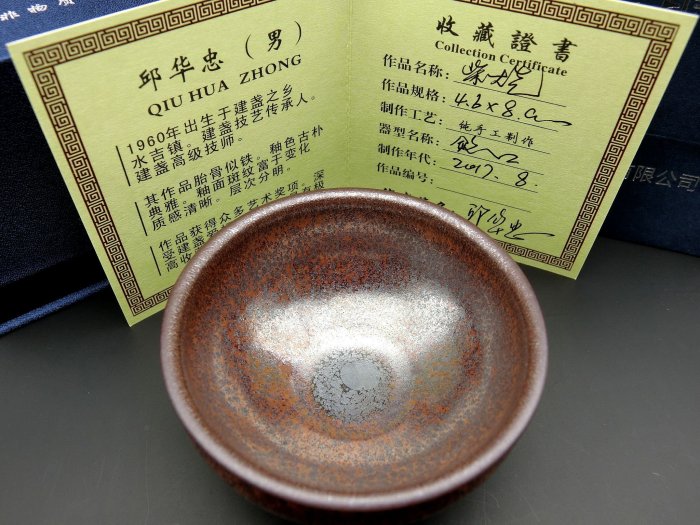 非物质
邱华忠（男）
QIU HUA ZHONG
1960年出生于建盏之乡
水吉镇。建盏技艺传承人。
建盏高级技师。
其作品胎骨似铁，釉色古朴
典雅。釉面斑纹富于变化
质感清晰。层次分明。
作品获得众多艺术奖项。深
受建盏
高收
收藏證書
Collection Certificate
作品名称：
作品规格：4.6×8.cm
制作工艺：纯手工制作
器型名称：
制作年代：2017.8.
作品编号：
邱华忠
有限公司